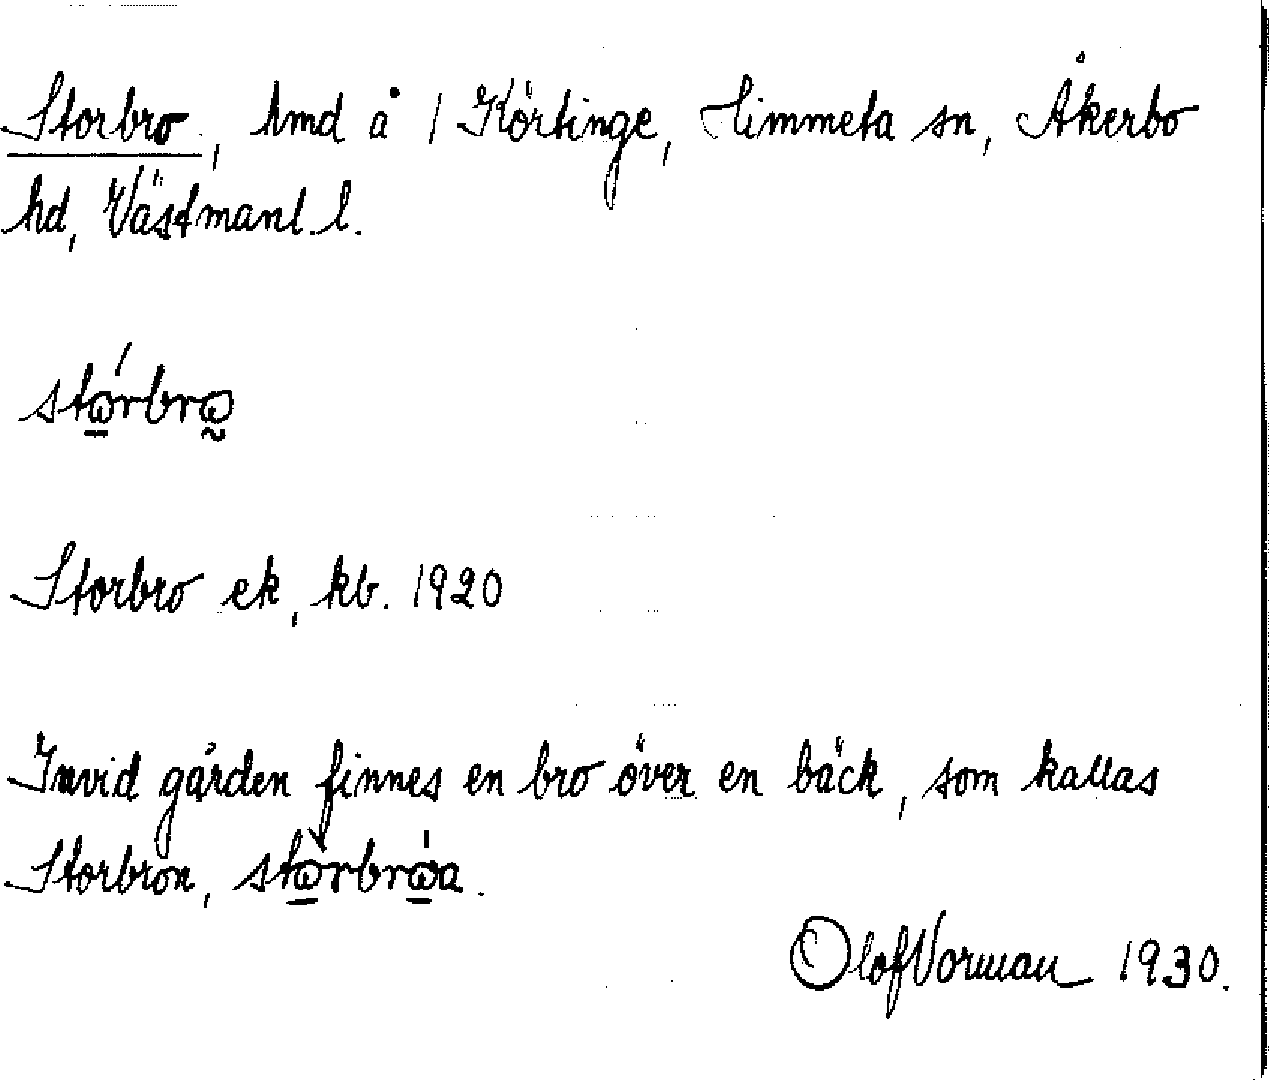 Storbro, hmd å 1 Körtinge, Himmeta sn, Åkerbo
hd, Västmanl. l.
Storbro ek, kb. 1920
Invid gården finnes en bro över en bäck, som kallas
Storbron,
Olof Vorman 1930.